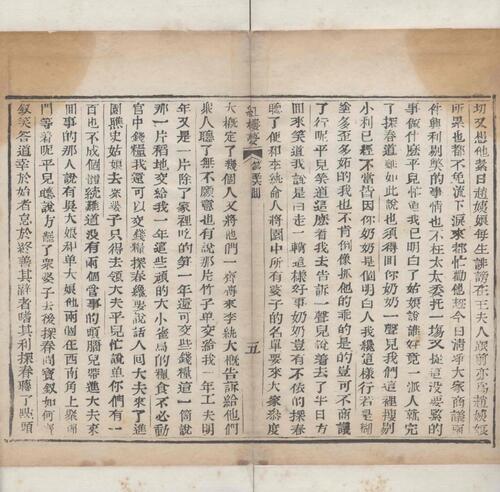 切又想他素日趙姨娘每生誹謗在王夫人跟前亦為趙姨娘
所累也都不免流下淚來都忙勸他趁今日清淨大家商議兩
件興利剔弊的事情也不枉太太委托一場又提這没要緊的
事做什麽平兒忙道我已明白了姑娘說誰好竟一派人就完
了探春道雖如此說也須得囬你奶奶一聲兒我們這裡搜剔
小利已經不當皆因你奶奶是個明白人我纔這樣行若是糊
塗多歪多妬的我也不肯倒像抓他的乖的是的豈可不商議
了行呢平兒笑道這麽着我去告訴一聲兒說着去了半日方
囬來笑道我說是白走一輪這樣好事奶奶豈有不依的探春
聽了便和李紈命人將園中所有婆子的名單要來大家叅度
紅樓夢 五
大概定了幾個人又將他們一齊傳來李紈大概告訴給他們
衆人聽了無不願意也有說那片竹子單交給我一年工夫明
年又是一片除了家裡吃的笋一年還可交些錢糧這一個說
那一片稻地交給我一年這些頑的大小雀鳥的糧食不必動
官中錢糧我還可以交錢糧探春纔要說話人囬大夫來了進
園瞧史姑娘去衆婆子只得去領大夫平兒忙說單你們有一
百也不成個體統難道没有兩個管事的頭腦兒帶進大夫來
囬事的那人說有吳大娘和單大娘他兩個在西南角上聚錦
門等着呢平兒聽說方罷了衆婆子去後探春問寶釵如何寶
釵笑答道幸於始者怠於終善其辭者嗜其利探春聽了點頭